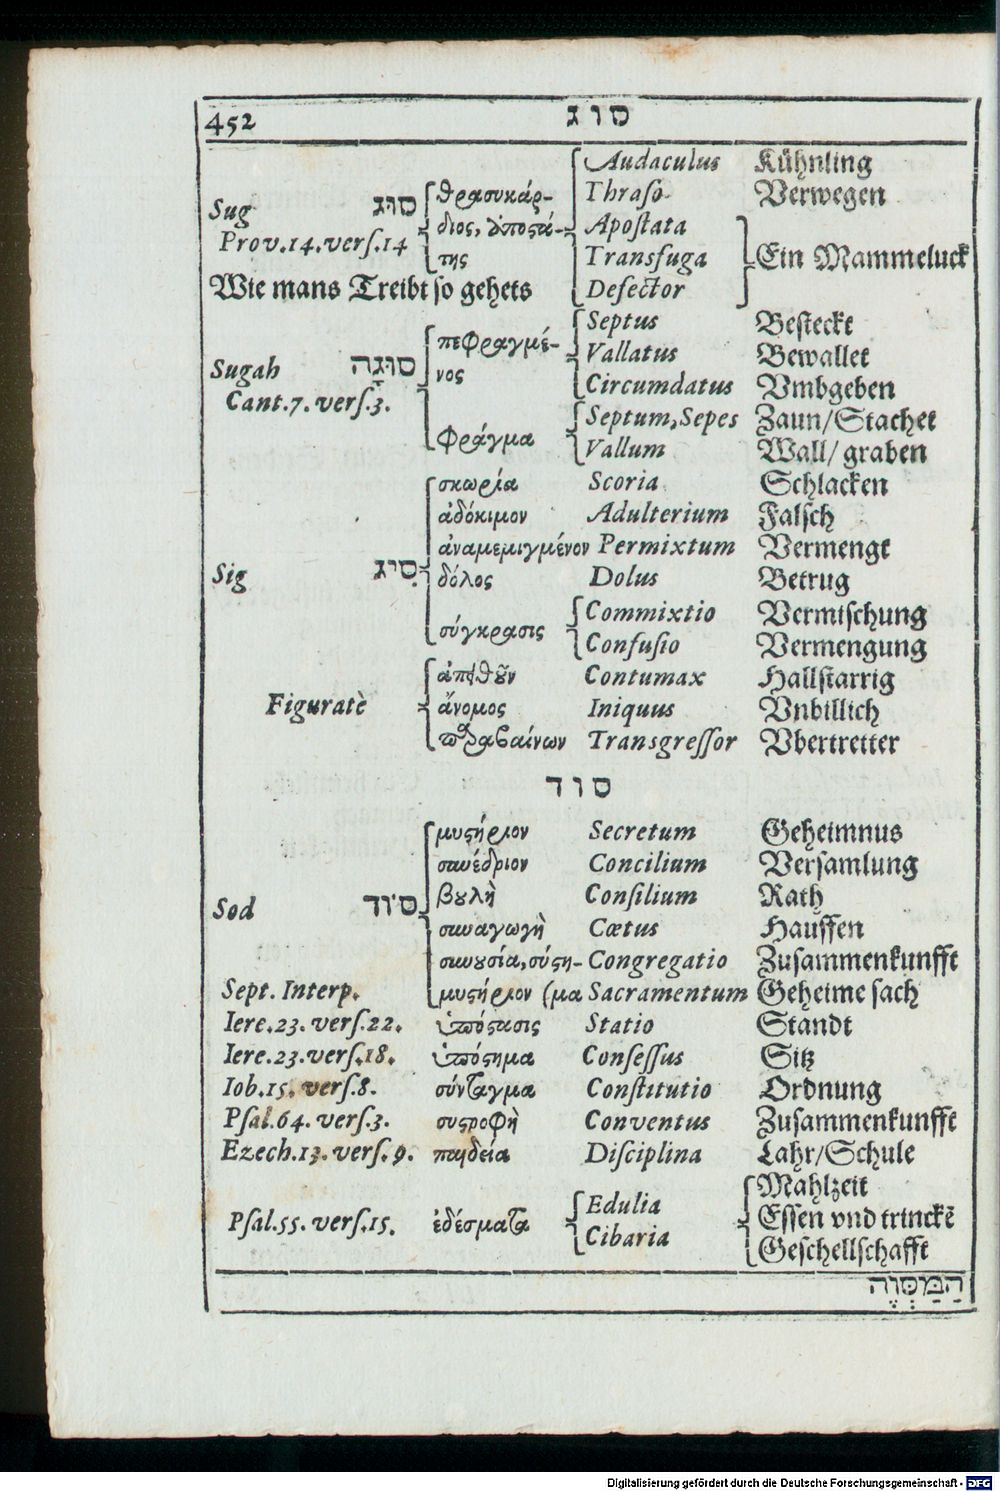 452 סוג
Audaculus Kühnling
Sug סוּג θρασυκάρ- Thraso Verwegen
Prov.14.verſ.14 διος, ἀποςά- Apoſtata
της Transfuga Ein Mammeluck
Wie mans Treibt ſo gehets Defector
Septus Beſteckt
πεφραγμέ- Vallatus Bewallet
Sugah סוּגָה νος Circumdatus Vmbgeben
Cant.7.verſ.3. Septum, Sepes Zaun/Stachet
φράγμα Vallum Wall/ graben
σκωρία Scoria Schlacken
ἀδόκιμον Adulterium Falſch
ἀναμεμιγμένον Permixtum Vermengt
Sig סִיג δόλος Dolus Betrug
Commixtio Vermiſchung
σύγκρασις Confuſio Vermengung
ἀπειθοῦν Contumax Hallſtarrig
Figuratè ἄνομος Iniquus Vnbillich
παραβαίνων Transgreſſor Vbertretter
סוד
μυςήριον Secretum Geheimnus
συνέδριον Concilium Verſamlung
βουλὴ Conſilium Rath
Sod סוֹד συναγωγὴ Cœtus Hauffen
συνουσία, σύςη- Congregatio Zuſammenkunfft
Sept. Interp. μυςήριον (μα Sacramentum Geheime ſach
Iere.23.verſ.22. ὑπόςασις Statio Standt
Iere.23.verſ.18. ὑπόςημα Conſeſſus Sitz
Iob.15.verſ.8. σύνταγμα Conſtitutio Ordnung
Pſal.64.verſ.3. συςροφὴ Conventus Zuſammenkunfft
Ezech.13.verſ.9. παιδεία Diſciplina Lahr/Schule
Mahlzeit
Pſal.55.verſ.15. ἐδέσματα Edulia Eſſen vnd trinckẽ
Cibaria Geſchellſchafft
הַמַּסְוֶה
Digitalisierung gefördert durch die Deutsche Forschungsgemeinschaft - DFG